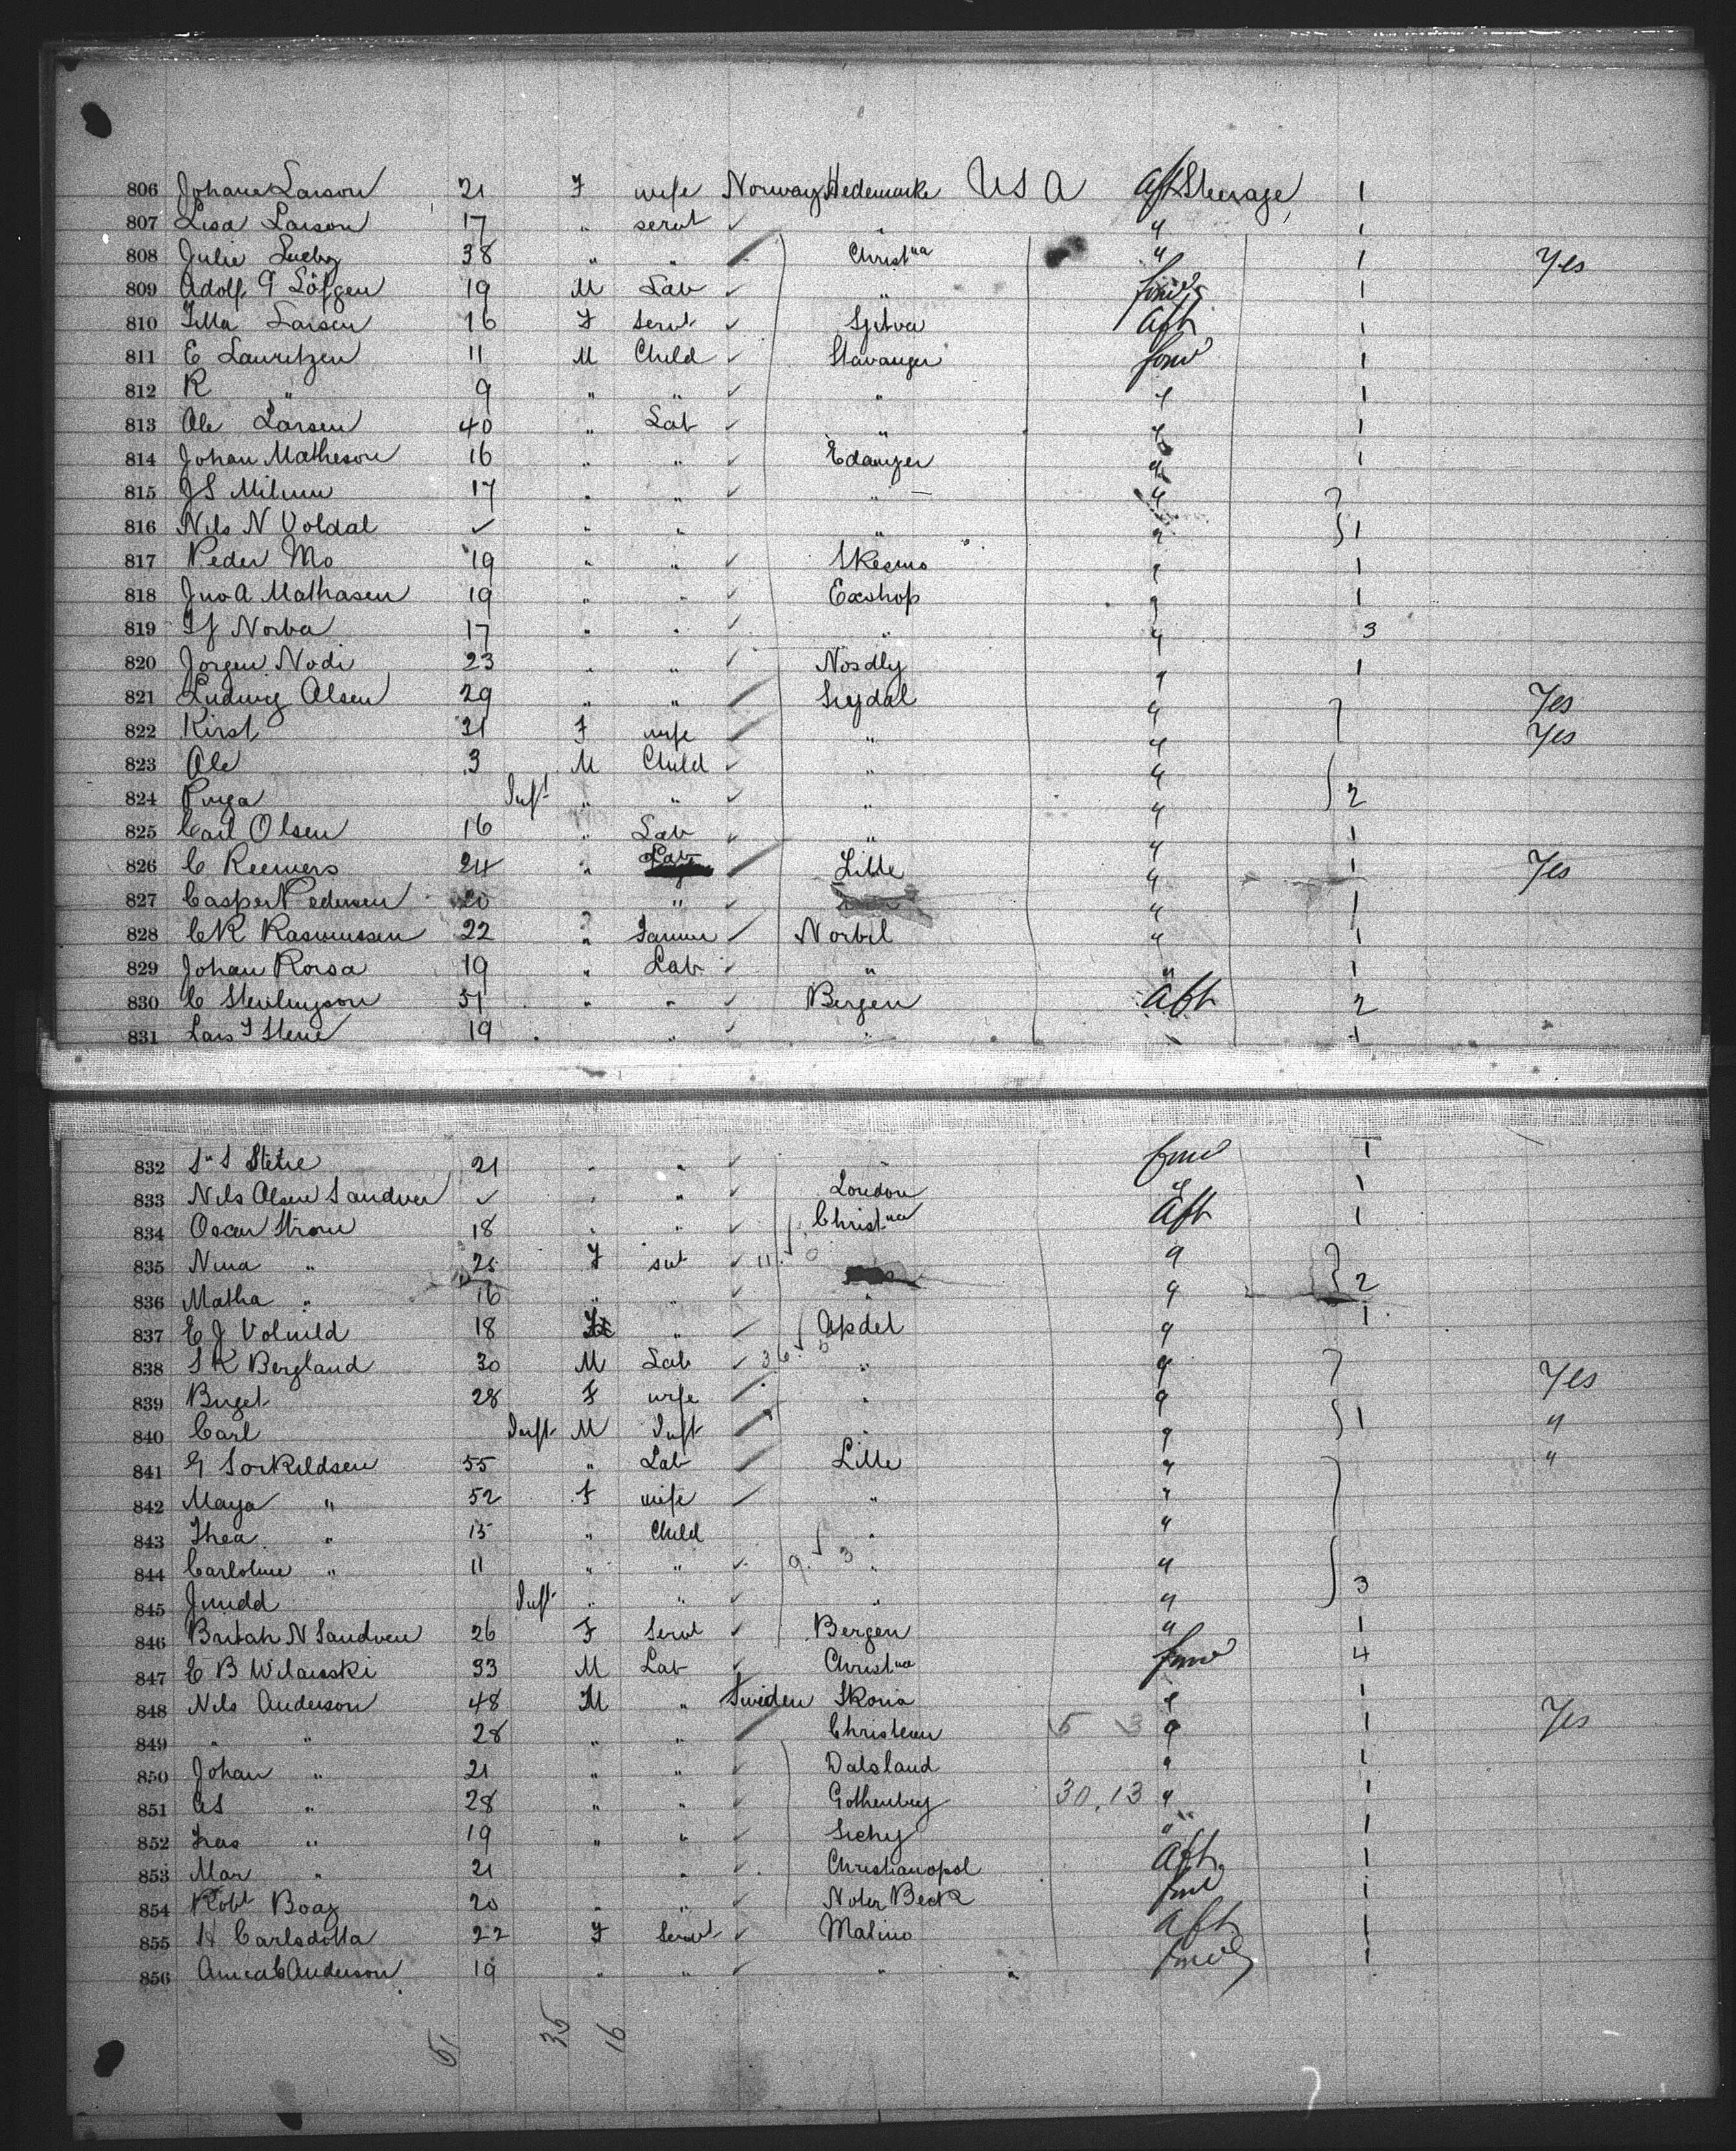 806 Johane Larson 21 F wife Norway Hedemarke USA Aft Steerage 1
807 Lisa Larson 17 " servt ✓ " " 1
808 Julie Lueby 38 " " Christna " 1 Yes
809 Adolf G Löfgen 19 M Lab ✓ " forwd 1
810 Larsen 16 F Servt ✓ Aft 1
811 E Lauritzen 11 M Child ✓ Stavanger forw 1
812 R " 9 " " ✓ " " 1
813 Ole Larsen 40 " Lab ✓ " " 1
814 Johan Matheson 16 " " ✓ Edanger " 1
815 JS Milum 17 " " ✓ " "
816 Nils N Voldal ✓ " " " " 1
817 Peder Mo 19 " " ✓ Skesmo " 1
818 Jno A Mathasen 19 " " ✓ Exshop " 1
819 Norba 17 " " ✓ " " 3
820 Jorgen Nodi 23 " " ✓ Nosdly " 1
821 Ludwig Olsen 29 " " " Yes
822 Kirst 31 F wife " " Yes
823 Ole 3 M Child ✓ " "
824 Inft " " ✓ " " 2
825 Carl Olsen 16 " Lab " " " 1
826 C Reemers 24 " Lab Lille " 1 Yes
827 Casper Pedersen 20 " ✓ " 1
828 CK Rasmussen 22 " Farmer Norbil " 1
829 Johan Rorsa 19 " Lab ✓ " " 1
830 C 51 " " ✓ Bergen Aft 2
831 Lars 19 " " ✓ " " 1
832 Stene 21 " " ✓ " forw 1
833 Nils Olsen Sandven ✓ " " ✓ London " 1
834 Oscar Strom 18 " " ✓ Christna Aft 1
835 Nina " F ✓ 11. 0 "
836 Matha " 16 " " ✓ " " 2
837 E J 18 " Opdel " 1
838 S K Bergland 30 M Lab ✓ 36. 5 " " Yes
839 Birget 28 F wife " " 1 "
840 Carl Inft M Inft " " "
841 G Torkildsen 55 " Lab Lille "
842 Maya " 52 F wife " "
843 Thea " 15 " Child " "
844 Carloline " 11 " " ✓ 9. 3 " "
845 Inft " " ✓ " " 3
846 Britah N Sandven 26 F Servt ✓ Bergen " 1
847 E B Wilaisski 33 M Lab ✓ Christna forw 4
848 Nils Anderson 48 M " Sweden Skona " 1 Yes
849 " " 28 " " Christian 5 3 " 1
850 Johan " 21 " " ✓ Dalsland " 1
851 AS " 28 " " ✓ Gothenberg 30.13 " 1
852 " 19 " " ✓ " 1
853 Mar " 21 " ✓ Christianopol Aft 1
854 Robt Boag 20 " " ✓ Noter Beck forw 1
855 H Carlsdotta 22 F Servt ✓ Malmo Aft 1
856 Anderson 19 " " ✓ " forwd 1
51 35 16